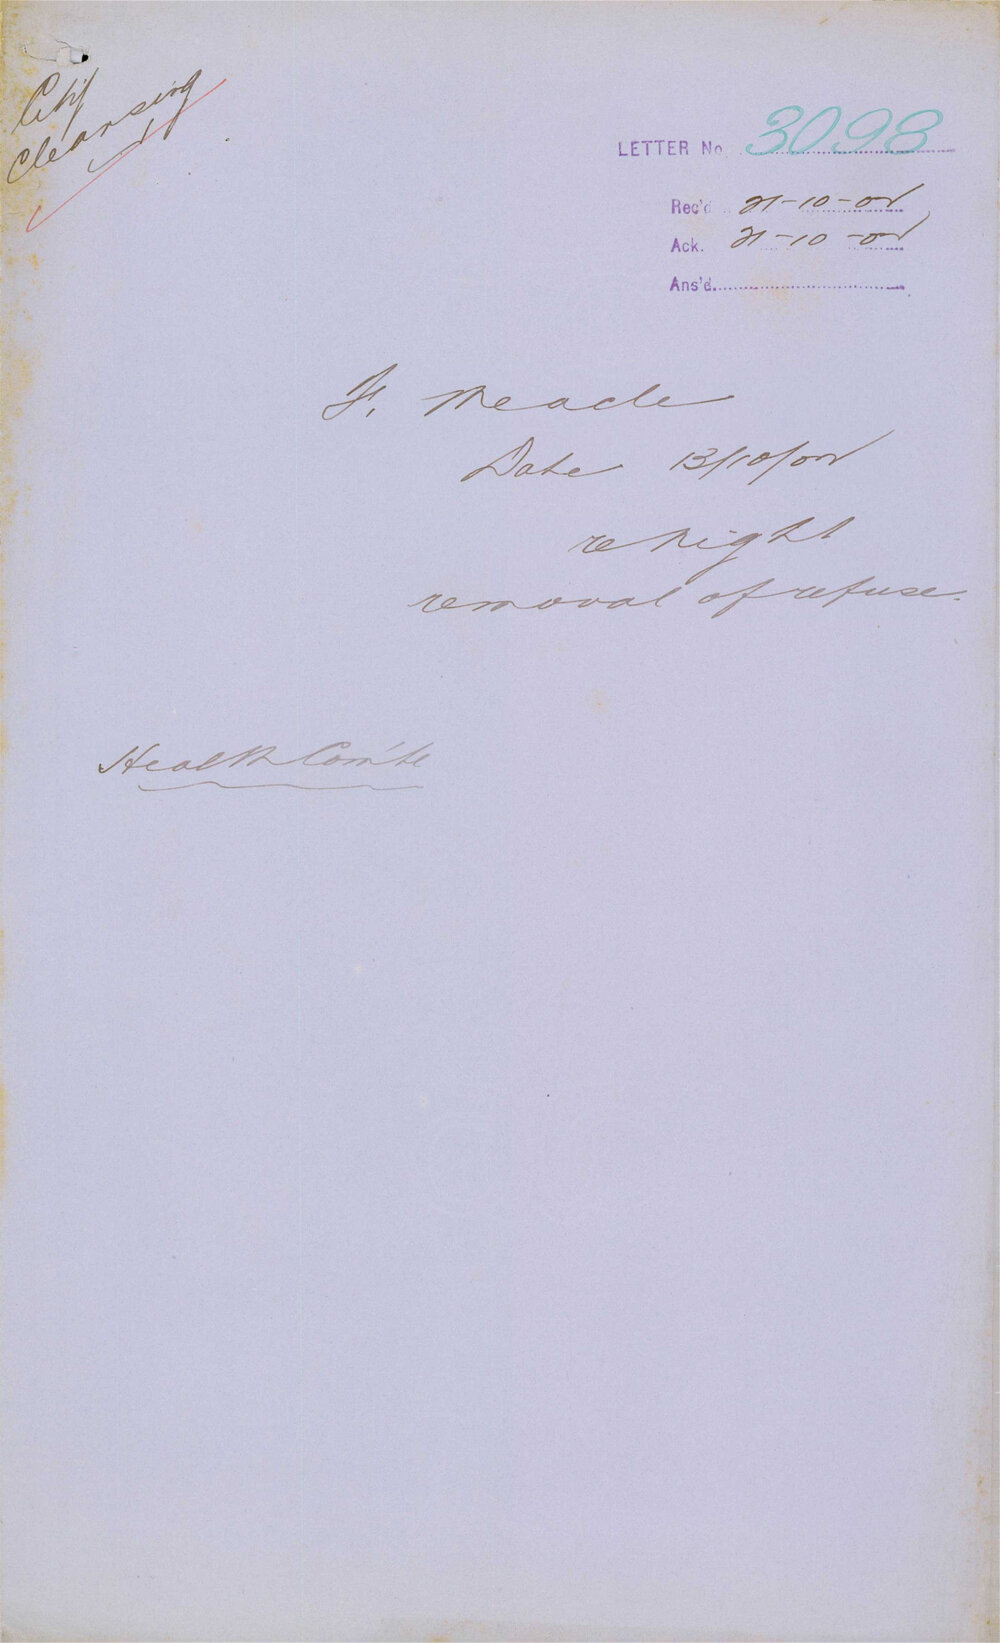 City
Cleansing
LETTER No 3098
Rec'd 21-10-02
Ack. 21-10-02
Ans'd.
F. Meade
Date 13/10/02
re night
removal of refuse.
Health Com'te